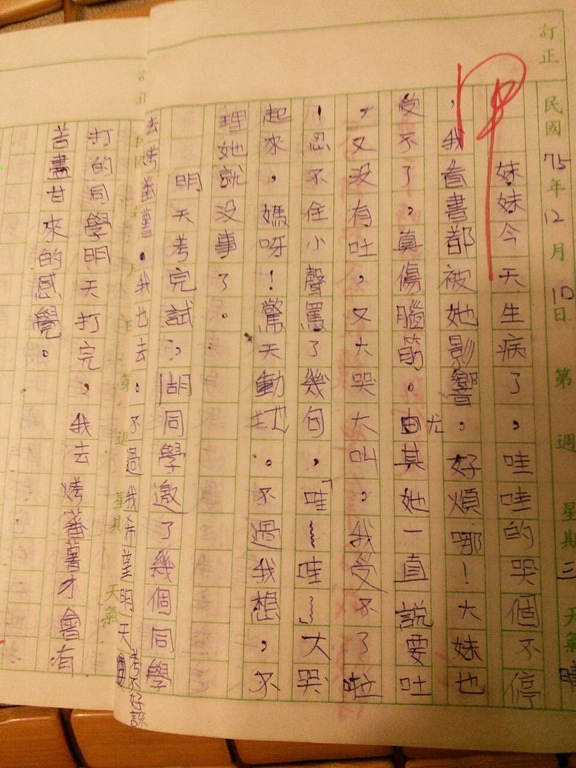 訂正
民國75年12月10日 第 週 星期三 天氣晴
妹妹今天生病了，哇哇的哭個不停
，我看書都被她影響，好煩哪！大妹也
受不了，真傷腦筋。尤由其她一直說要吐
，又沒有吐，又大哭大叫，我受不了啦
！忍不住小聲罵了幾句，「哇～哇～」大哭
起來，媽呀！驚天動地。不過我想，不
理她就沒事了。
明天考完試，胡同學邀了幾個同學
去烤蕃薯。我也去。不過我希望明天考不好該
打的同學明天打完，我去烤蕃薯才會有
苦盡甘來的感覺。